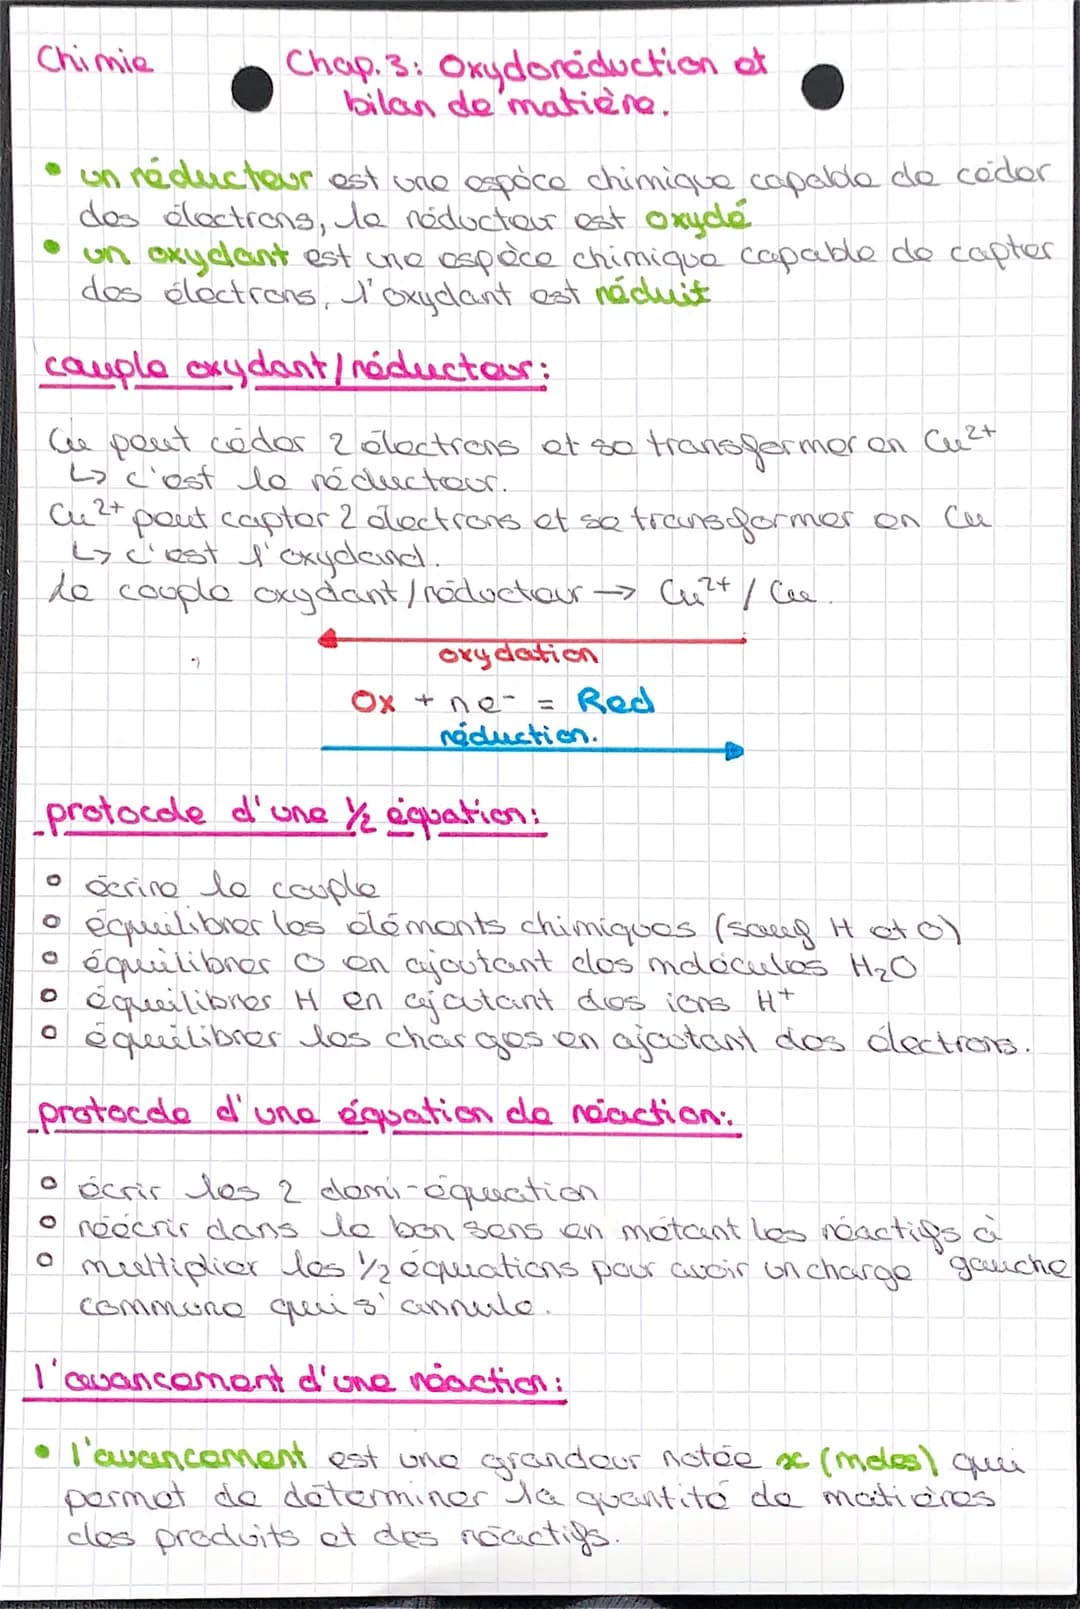 Chimie
Chap.3: Oxydoréduction et
bilan de matière.
• un réducteur est une espèce chimique capable de céder
des électrons, le réducteur est oxydé
• un oxydant est une espèce chimique capable de capter
des électrons, l'oxydant est réduit
couple oxydant/réducteur:
Cu peut céder 2 électrons et se transformer en Cu²⁺
↳ c'est le réducteur.
Cu²⁺ peut capter 2 électrons et se transformer en Cu
↳ c'est l'oxydand.
le couple oxydant/réducteur → Cu²⁺ / Cu.
oxydation
Ox + ne⁻ = Red
réduction.
protocole d'une ½ équation:
○ écrire le couple
○ équilibrer les éléments chimiques (sauf H et O)
○ équilibrer O en ajoutant des molécules H₂O
○ équilibrer H en ajoutant des ions H⁺
○ équilibrer les charges en ajoutant des électrons.
protocole d'une équation de réaction:
○ écrir les 2 demi-équation
○ réécrir dans le bon sens en métant les réactifs à
gauche
○ multiplier les ½ équations pour avoir un charge
commune qui s'annule.
l'avancement d'une réaction:
• l'avancement est une grandeur notée x (moles) qui
permet de déterminer la quantité de matières
des produits et des réactifs.